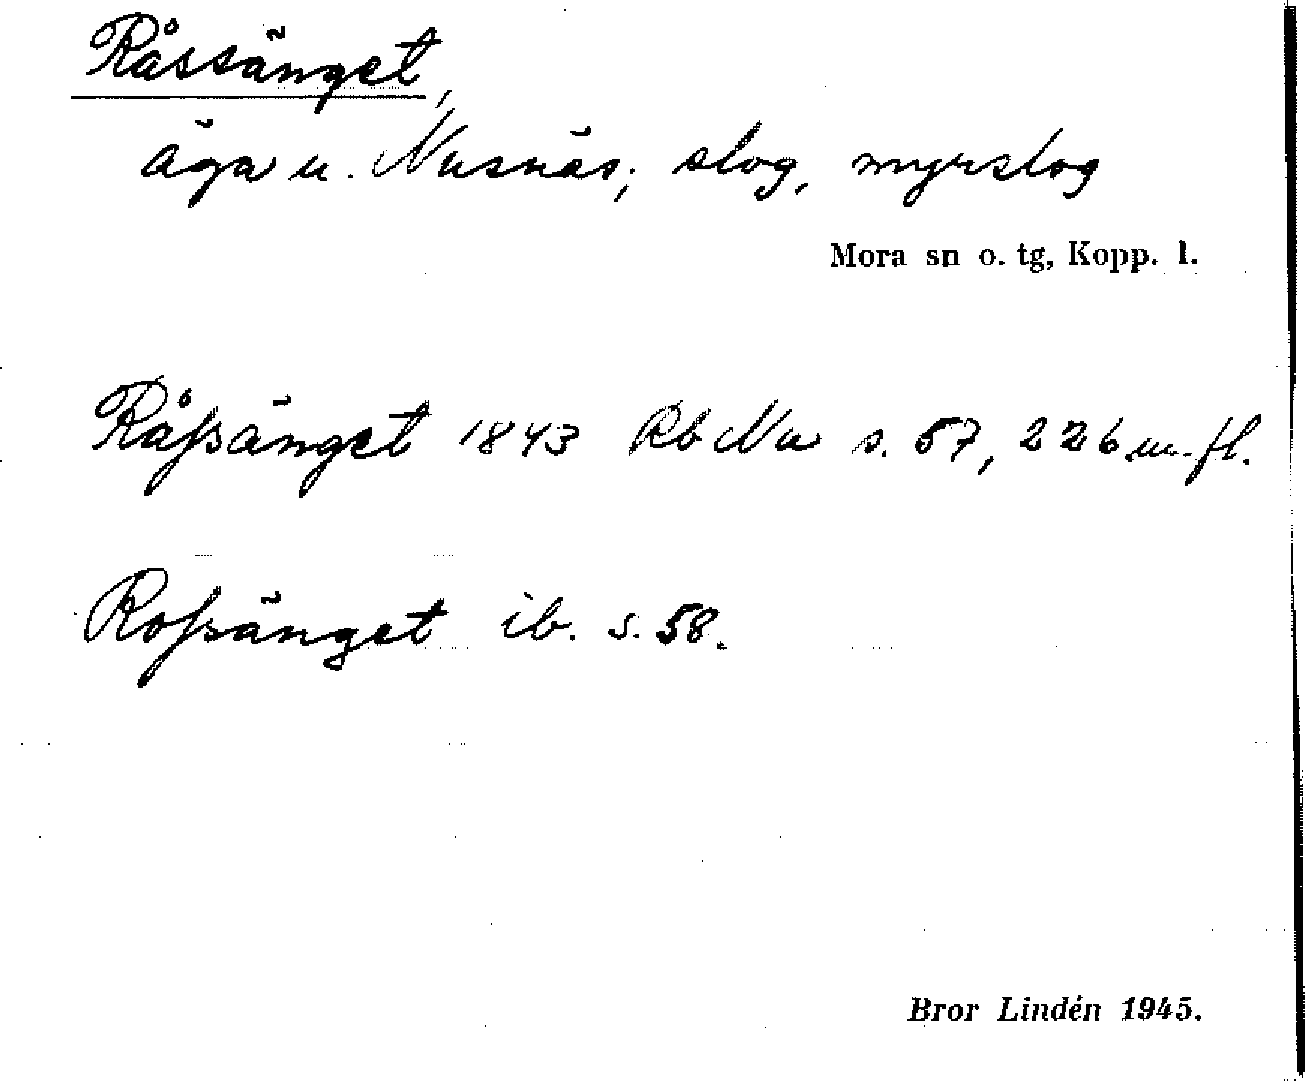 Råssänget,
äga u. Nusnäs; slog, myrslog
Mora sn o. tg, Kopp. l.
Råſsänget 1843 Rb Nu s. 57, 226 m. fl.
Roſsänget ib. s. 58.
Bror Lindén 1945.